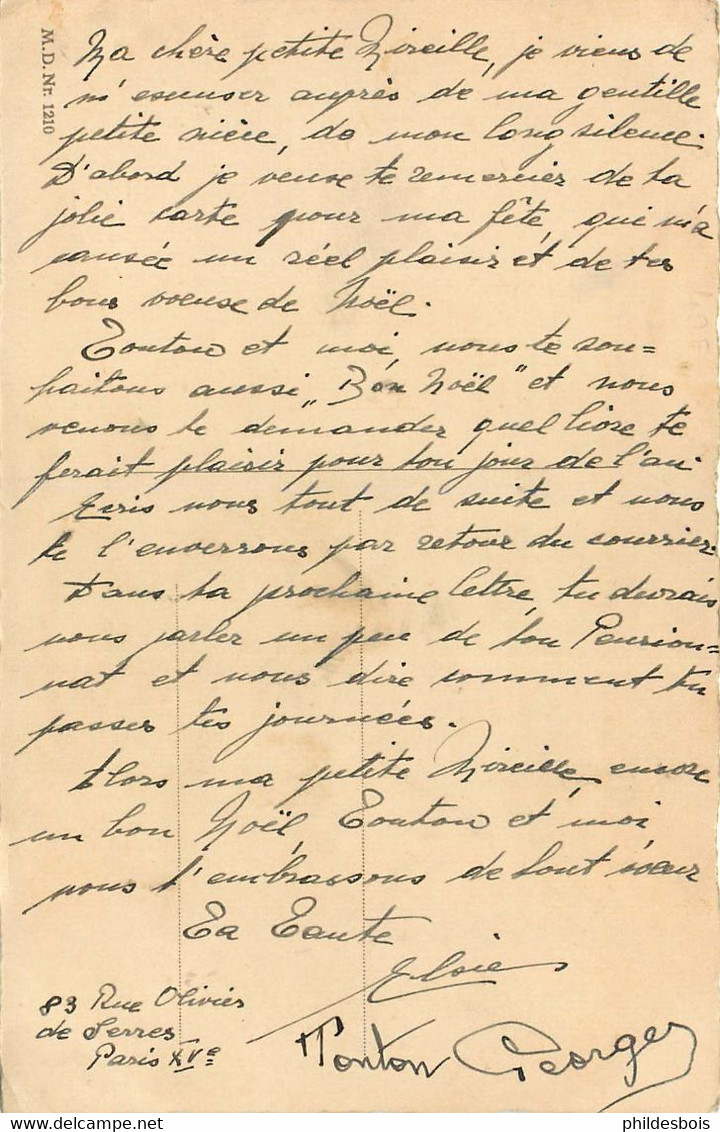 M.D. Nr. 1210
Ma chère petite Mireille, je viens de
m'escuser auprès de ma gentille
petite nièce, de mon long silence.
D'abord je veuse te remercier de ta
jolie carte pour ma fête, qui m'a
causée un réel plaisir et de tes
bons voeuse de Noël.
Tonton et moi, nous te sou=
haitons aussi „Bon Noël" et nous
venons te demander quel livre te
ferait plaisir pour ton jour de l'an.
Ecris nous tout de suite et nous
te l'enverrons par retour du courrier.
Dans ta prochaine lettre, tu devrais
nous parler un peu de ton Pension=
nat et nous dire comment tu
passes tes journées.
Alors ma petite Mireille, encore
un bon Noël, Tonton et moi
nous t'embrassons de tout coeur
Ta Tante
Elsie
83 Rue Olivier
de Serres
Paris XVe
Tonton Georges
phildesbois